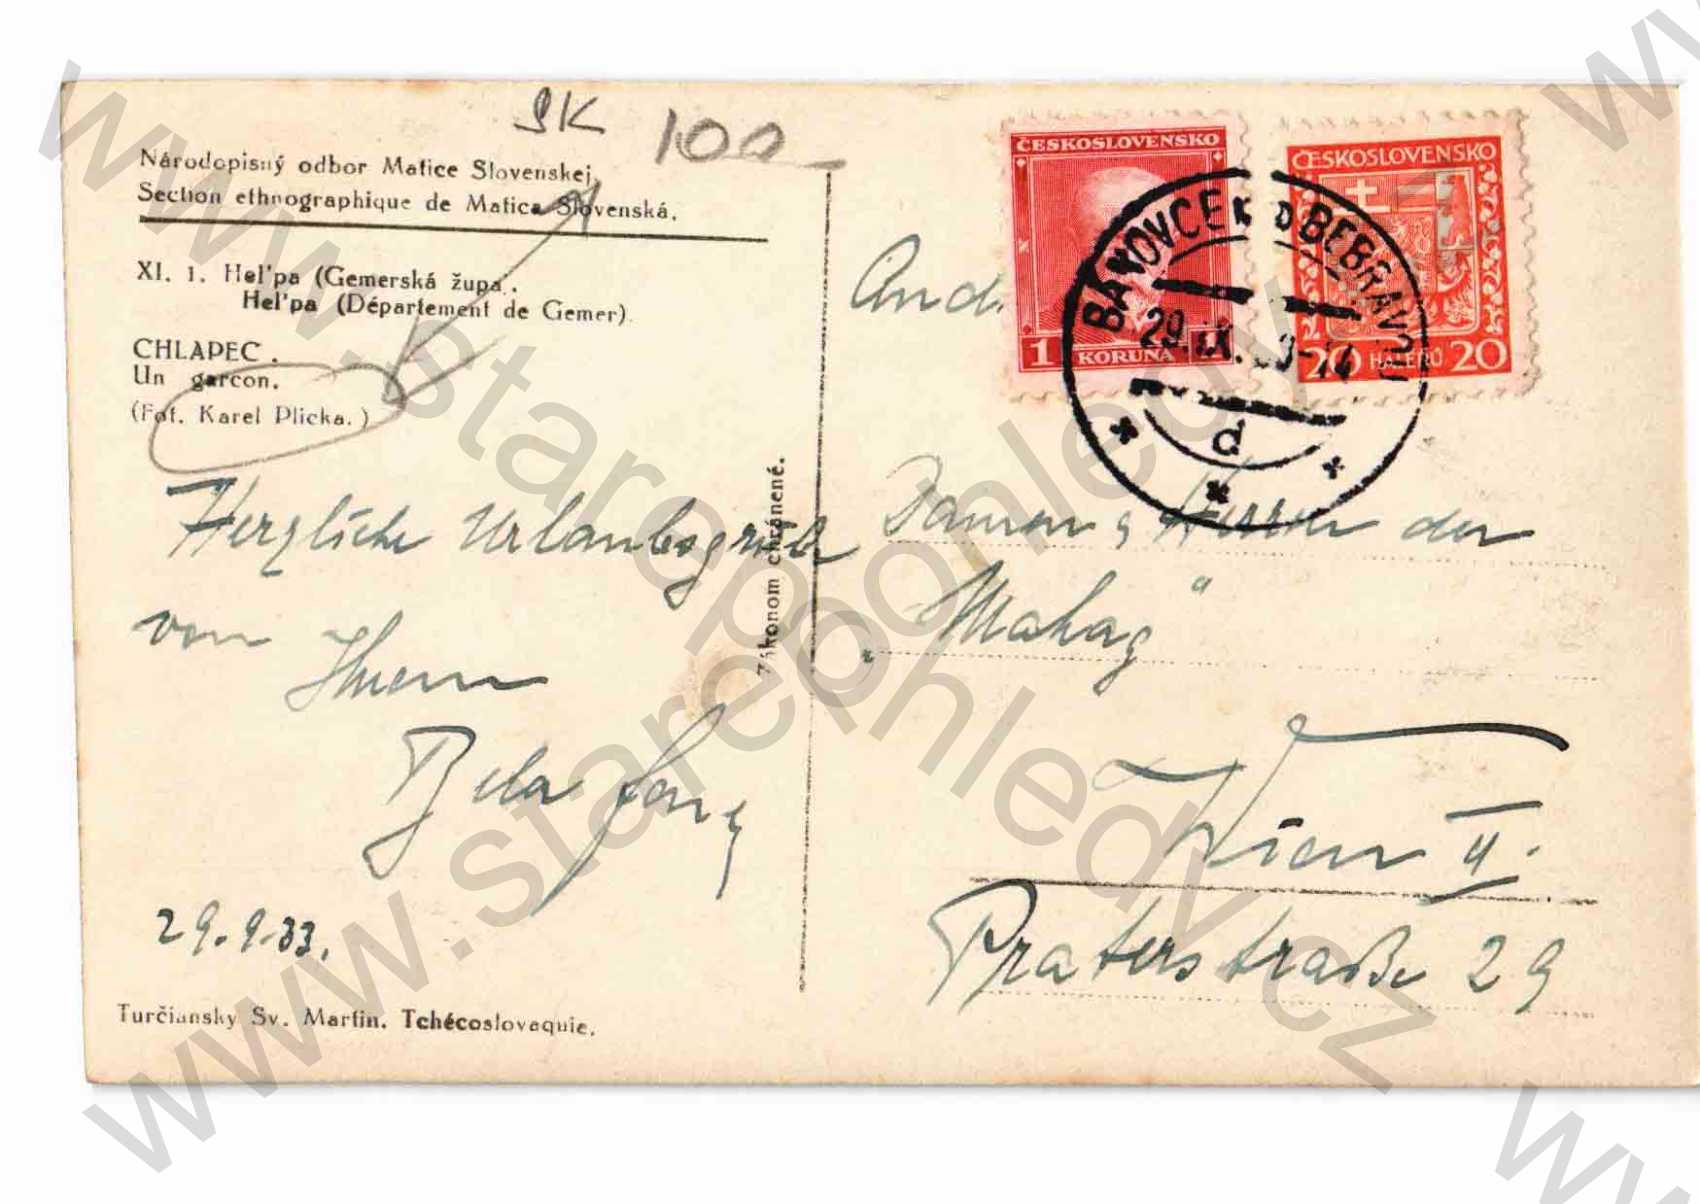 SK 100
Národopisný odbor Matice Slovenskej.
Section ethnographique de Matica Slovenská.
XI. 1. Hel'pa (Gemerská župa).
Hel'pa (Département de Gemer).
CHLAPEC.
Un garcon.
(Fot. Karel Plicka.)
Herzliche Urlaubsgrüße
von Ihrem
Bela
29.9.33.
Turčiansky Sv. Martin. Tchécoslovaquie.
Zákonom chránené.
ČESKOSLOVENSKO
1 KORUNA 1
ČESKOSLOVENSKO
20 HALÉŘŮ 20
BÁNOVCE N D BEBRAVOU
29. IX. 33-14
d
An d.
Damen & Herren der
„Mahag"
Wien II.
Praterstraße 29
www.starepohledy.cz
www.starepohledy.cz